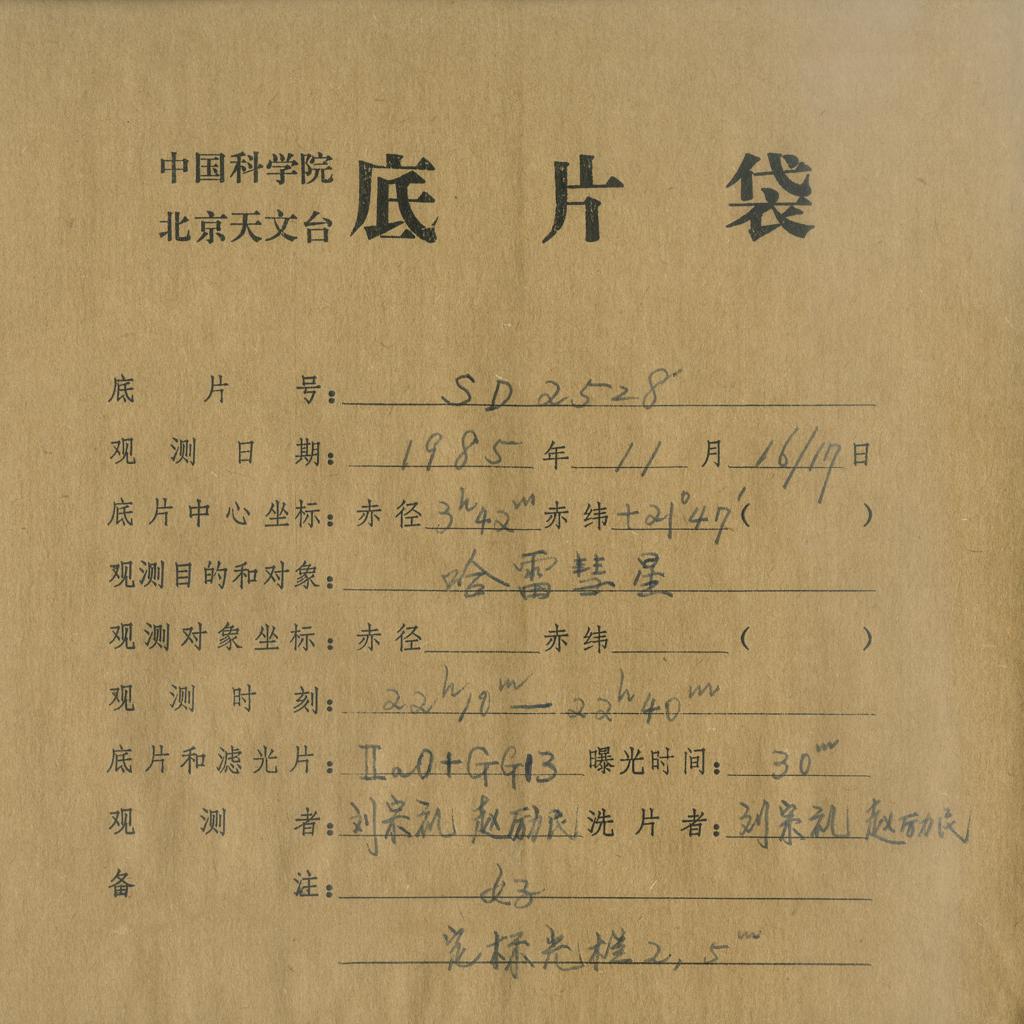 中国科学院
北京天文台
底片袋
底片号：SD2528
观测日期：1985年11月16/17日
底片中心坐标：赤径3h42m赤纬+21°47′（ ）
观测目的和对象：哈雷彗星
观测对象坐标：赤径 赤纬 （ ）
观测时刻：22h10m—22h40m
底片和滤光片：ⅡaO+GG13 曝光时间：30m
观测者：刘宗礼 赵励民 洗片者：刘宗礼 赵励民
备注：好
定标光楔2，5m